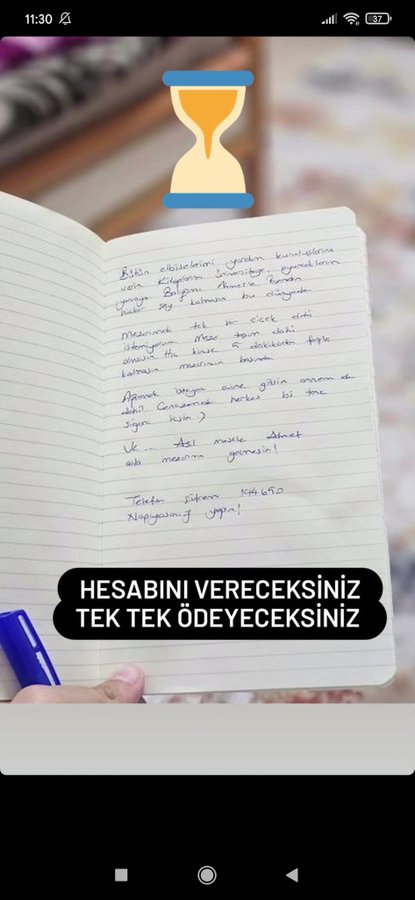 11:30
37
Bütün elbiselerimi yardım kuruluşlarına
verin Kitaplarım üniversiteye, oyuncaklarım
yuvaya Balığımı Ahmet'e
hiçbir şey kalmasın bu dünyada
Mezarımda tek bir çiçek dahi
istemiyorum Mezar taşım dahi
olmasın kimse 5 dakikadan fazla
kalmasın mezarımın başında
Ağlamak isteyen evine gitsin annem de
dahil Cenazemde herkes bi tane
sigara içsin :)
Ve ... Asıl mesele Ahmet
asla mezarıma gelmesin!
Telefon şifrem 144690
Napıyosanız yapın!
HESABINI VERECEKSİNİZ
TEK TEK ÖDEYECEKSİNİZ